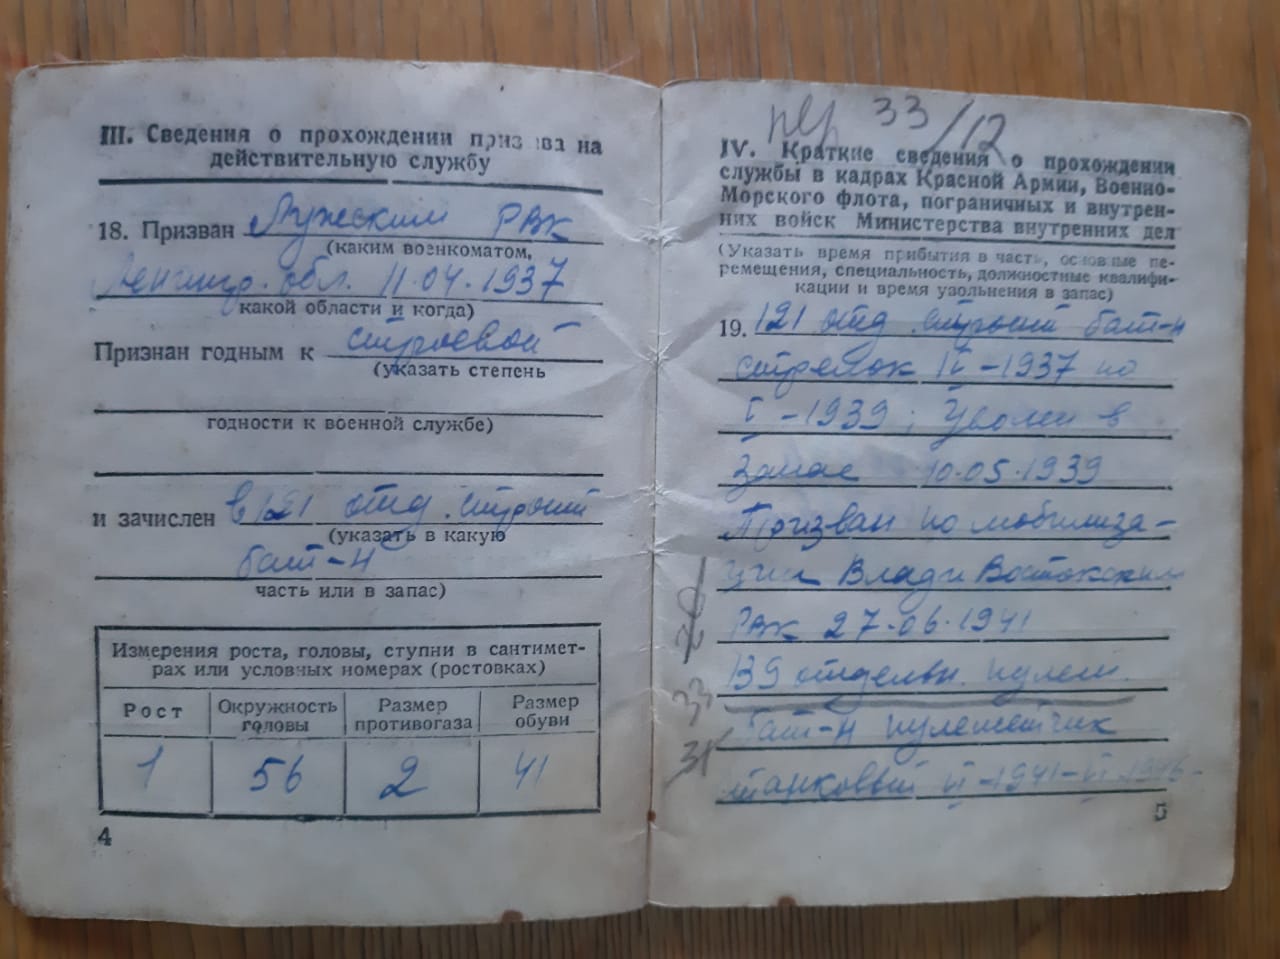 III. Сведения о прохождении призыва на
действительную службу
18. Призван Лужским РВК
(каким военкоматом,
Ленингр. обл. 11.04.1937
какой области и когда)
Признан годным к строевой
(указать степень
годности к военной службе)
и зачислен в 121 отд. строит
(указать в какую
бат-н
часть или в запас)
Измерения роста, головы, ступни в сантимет-
рах или условных номерах (ростовках)
Рост Окружность головы Размер противогаза Размер обуви
1 56 2 41
4
33/12
IV. Краткие сведения о прохождении
службы в кадрах Красной Армии, Военно-
Морского флота, пограничных и внутрен-
них войск Министерства внутренних дел
(Указать время прибытия в часть, основные пе-
ремещения, специальность, должностные квалифи-
кации и время увольнения в запас)
19. 121 отд. строит бат-н
стрелок IV-1937 по
V-1939; Уволен в
запас 10.05.1939
Призван по мобилиза-
ции Влади Востокским
РВК 27.06.1941
139 отдельн. пулем.
33
бат-н пулеметчик
танковый VI-1941-VI-1946.
5